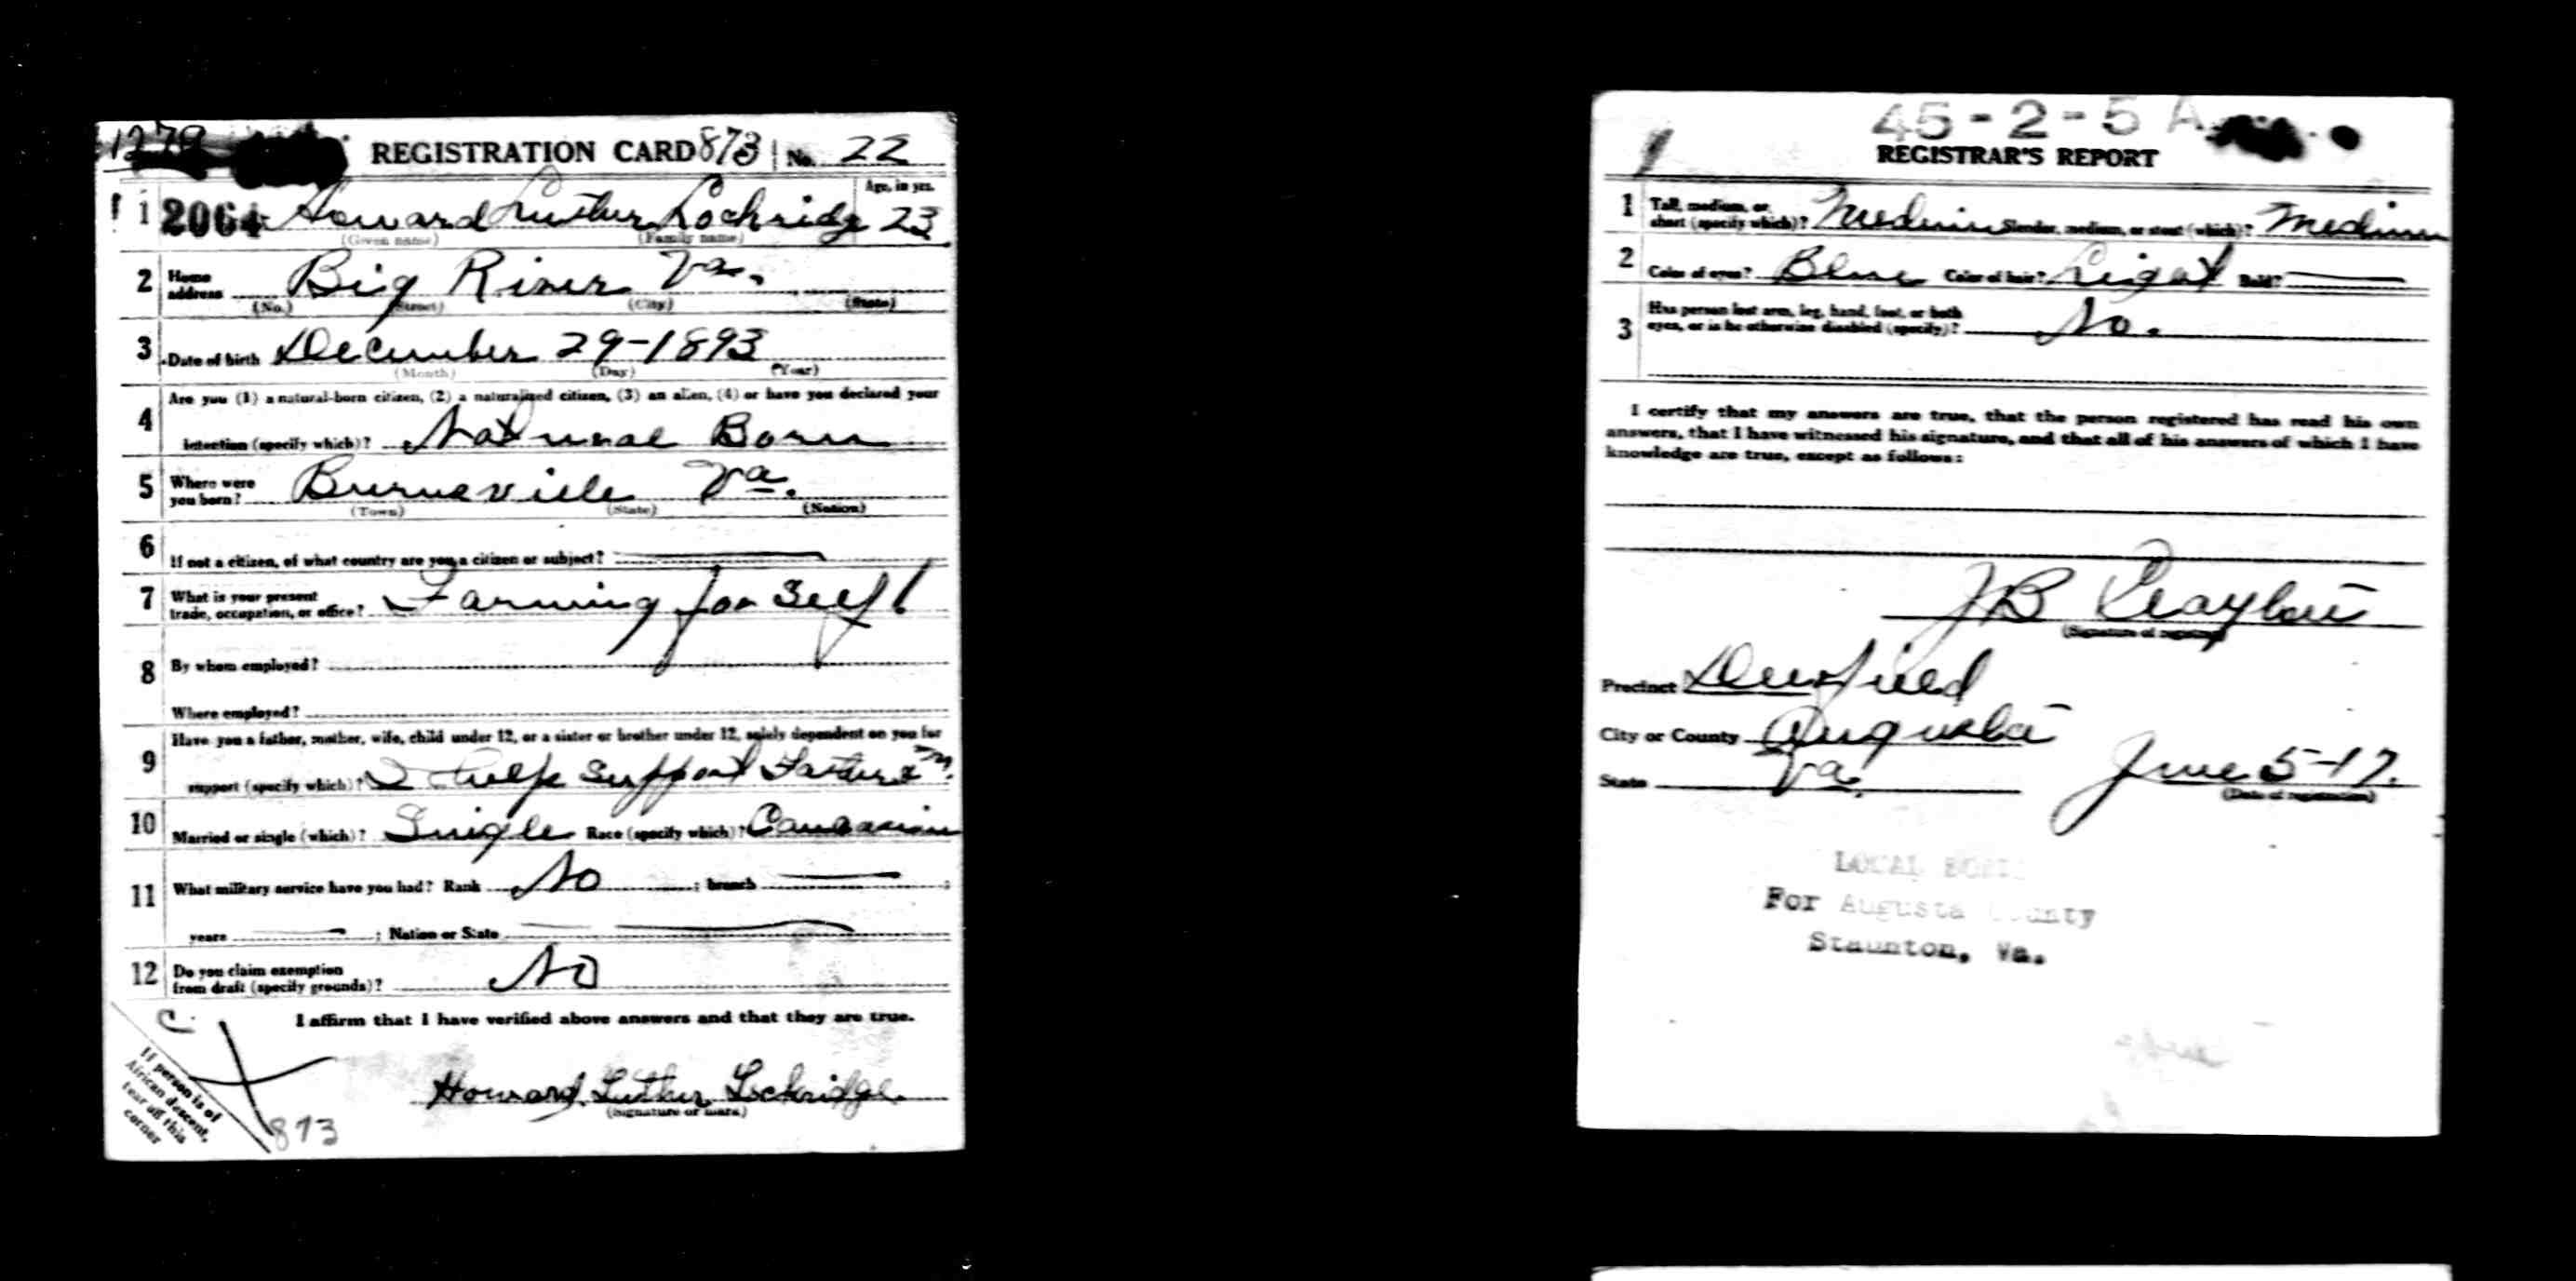 1279 REGISTRATION CARD 873 No. 22
1 2064 Howard Luther Lockridge Age, in yrs. 23
(Given name) (Family name)
2 Home address Big River Va.
(No.) (Street) (City) (State)
3 Date of birth December 29-1893
(Month) (Day) (Year)
4 Are you (1) a natural-born citizen, (2) a naturalized citizen, (3) an alien, (4) or have you declared your
intention (specify which)? Natural Born
5 Where were you born? Burnsville Va.
(Town) (State) (Nation)
6 If not a citizen, of what country are you a citizen or subject?
7 What is your present trade, occupation, or office? Farming for self
8 By whom employed?
Where employed?
9 Have you a father, mother, wife, child under 12, or a sister or brother under 12, solely dependent on you for
support (specify which)? I help support Father & M.
10 Married or single (which)? Single Race (specify which)? Caucasian
11 What military service have you had? Rank No ; branch ;
years ; Nation or State
12 Do you claim exemption from draft (specify grounds)? No
I affirm that I have verified above answers and that they are true.
Howard Luther Lockridge
(Signature or mark)
If person is of
African descent,
tear off this
corner
C.
873
45-2-5 A
REGISTRAR'S REPORT
1 Tall, medium, or short (specify which)? Medium Slender, medium, or stout (which)? Medium
2 Color of eyes? Blue Color of hair? Light Bald?
3 Has person lost arm, leg, hand, foot, or both
eyes, or is he otherwise disabled (specify)? No.
I certify that my answers are true, that the person registered has read his own
answers, that I have witnessed his signature, and that all of his answers of which I have
knowledge are true, except as follows:
J B
(Signature of registrar)
Precinct Deerfield
City or County Augusta
State Va. June 5-17.
(Date of registration)
LOCAL BOARD
For Augusta County
Staunton, Va.